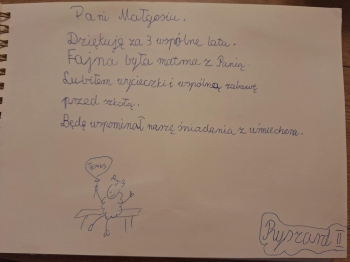 Pani Małgosiu.
Dziękuję za 3 wspólne lata.
Fajna była matma z Panią
Lubiłem wycieczki i wspólną zabawę
przed szkołą.
Będę wspominał nasze śniadania z uśmiechem.
Ryszard II